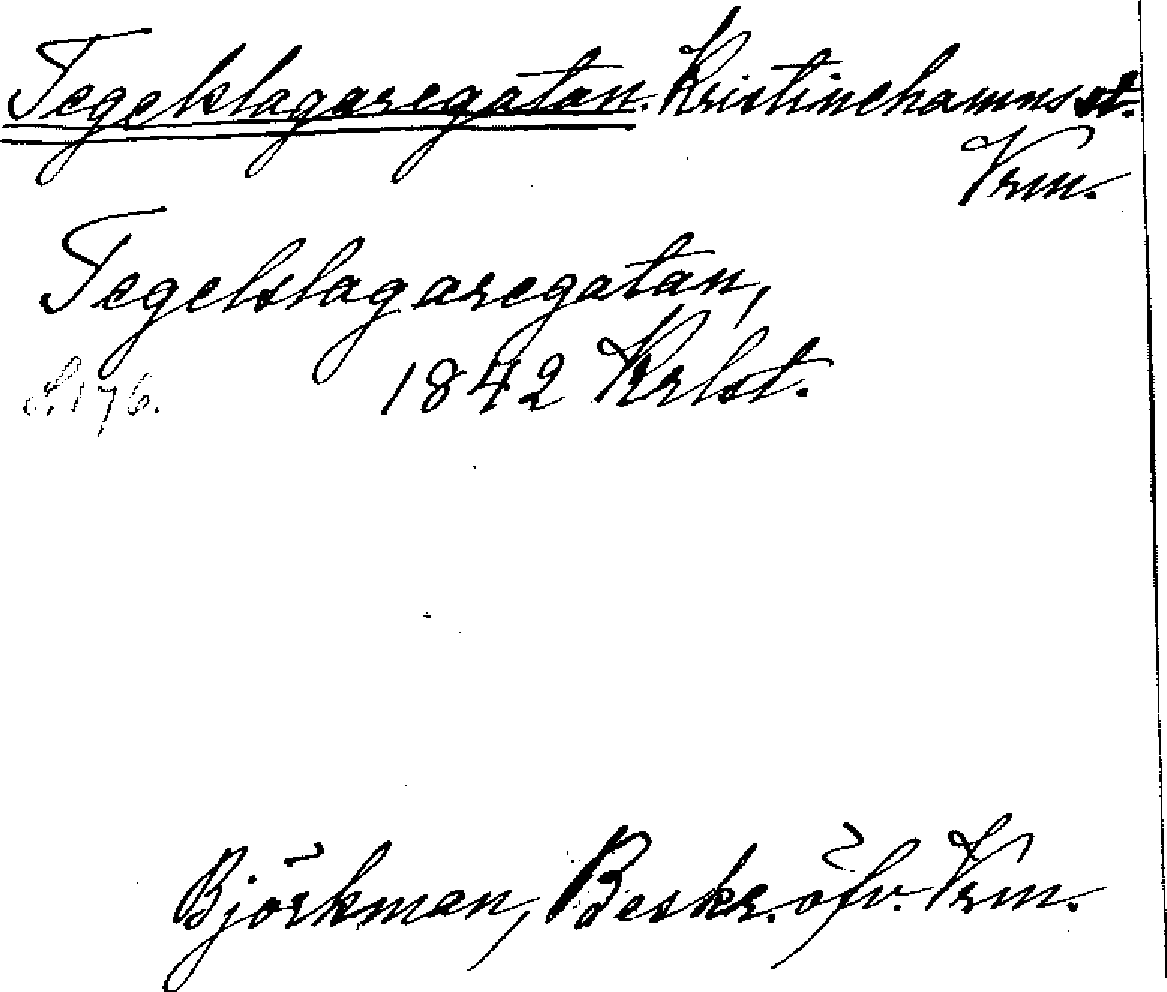 Tegelslagaregatan. Kristinehamns st.
Vrm.
Tegelslagaregatan,
S. 176. 1842 Krlst.
Björkman, Beskr. öfv. Vrm.